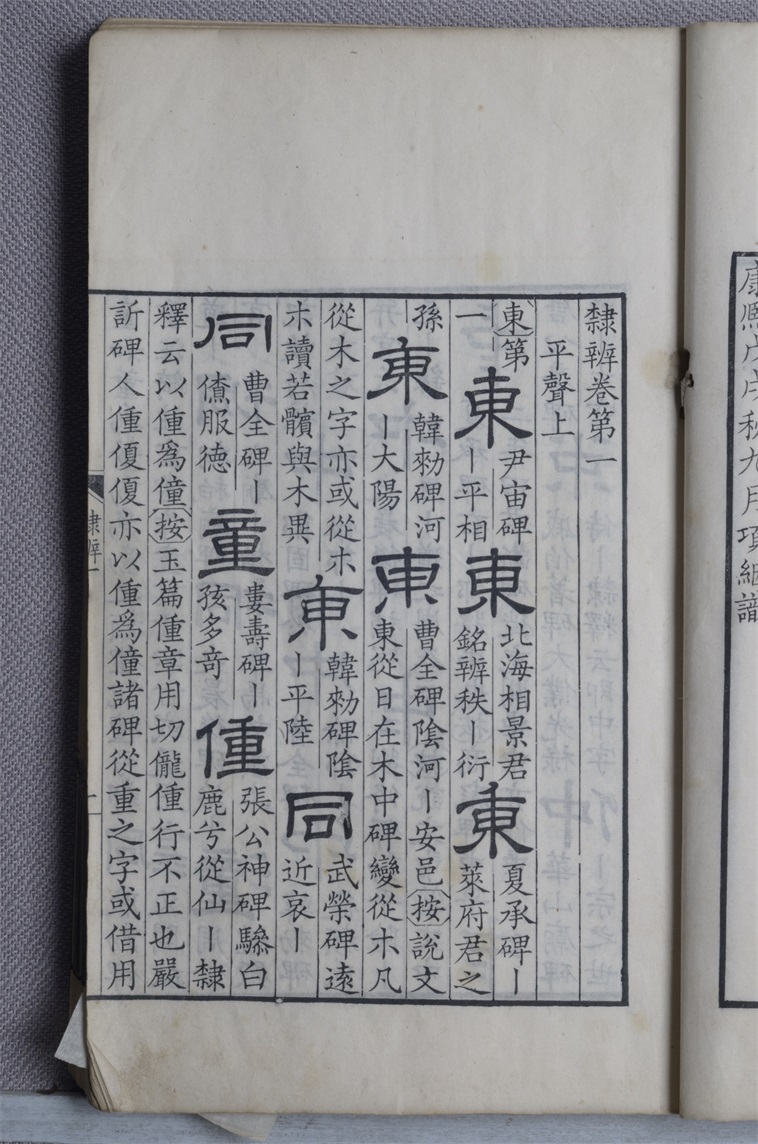 康熙戊戌秋九月項絪識
隸辨卷第一
平聲上
東第一
東 尹宙碑丨平相
東 北海相景君銘辨秩丨衍
東 夏承碑丨萊府君之孫
東 韓勑碑河丨大陽
東 曹全碑陰河丨安邑按說文東從日在木中碑變從朩凡從木之字亦或從朩朩讀若髕與木異
東 韓勑碑陰丨平陸
同 武榮碑遠近哀丨
同 曹全碑丨僚服德
童 婁壽碑丨孩多奇
偅 張公神碑驂白鹿兮從仙丨隸
釋云以偅爲僮按玉篇偅章用切儱偅行不正也嚴
訢碑人偅優優亦以偅爲僮諸碑從重之字或借用